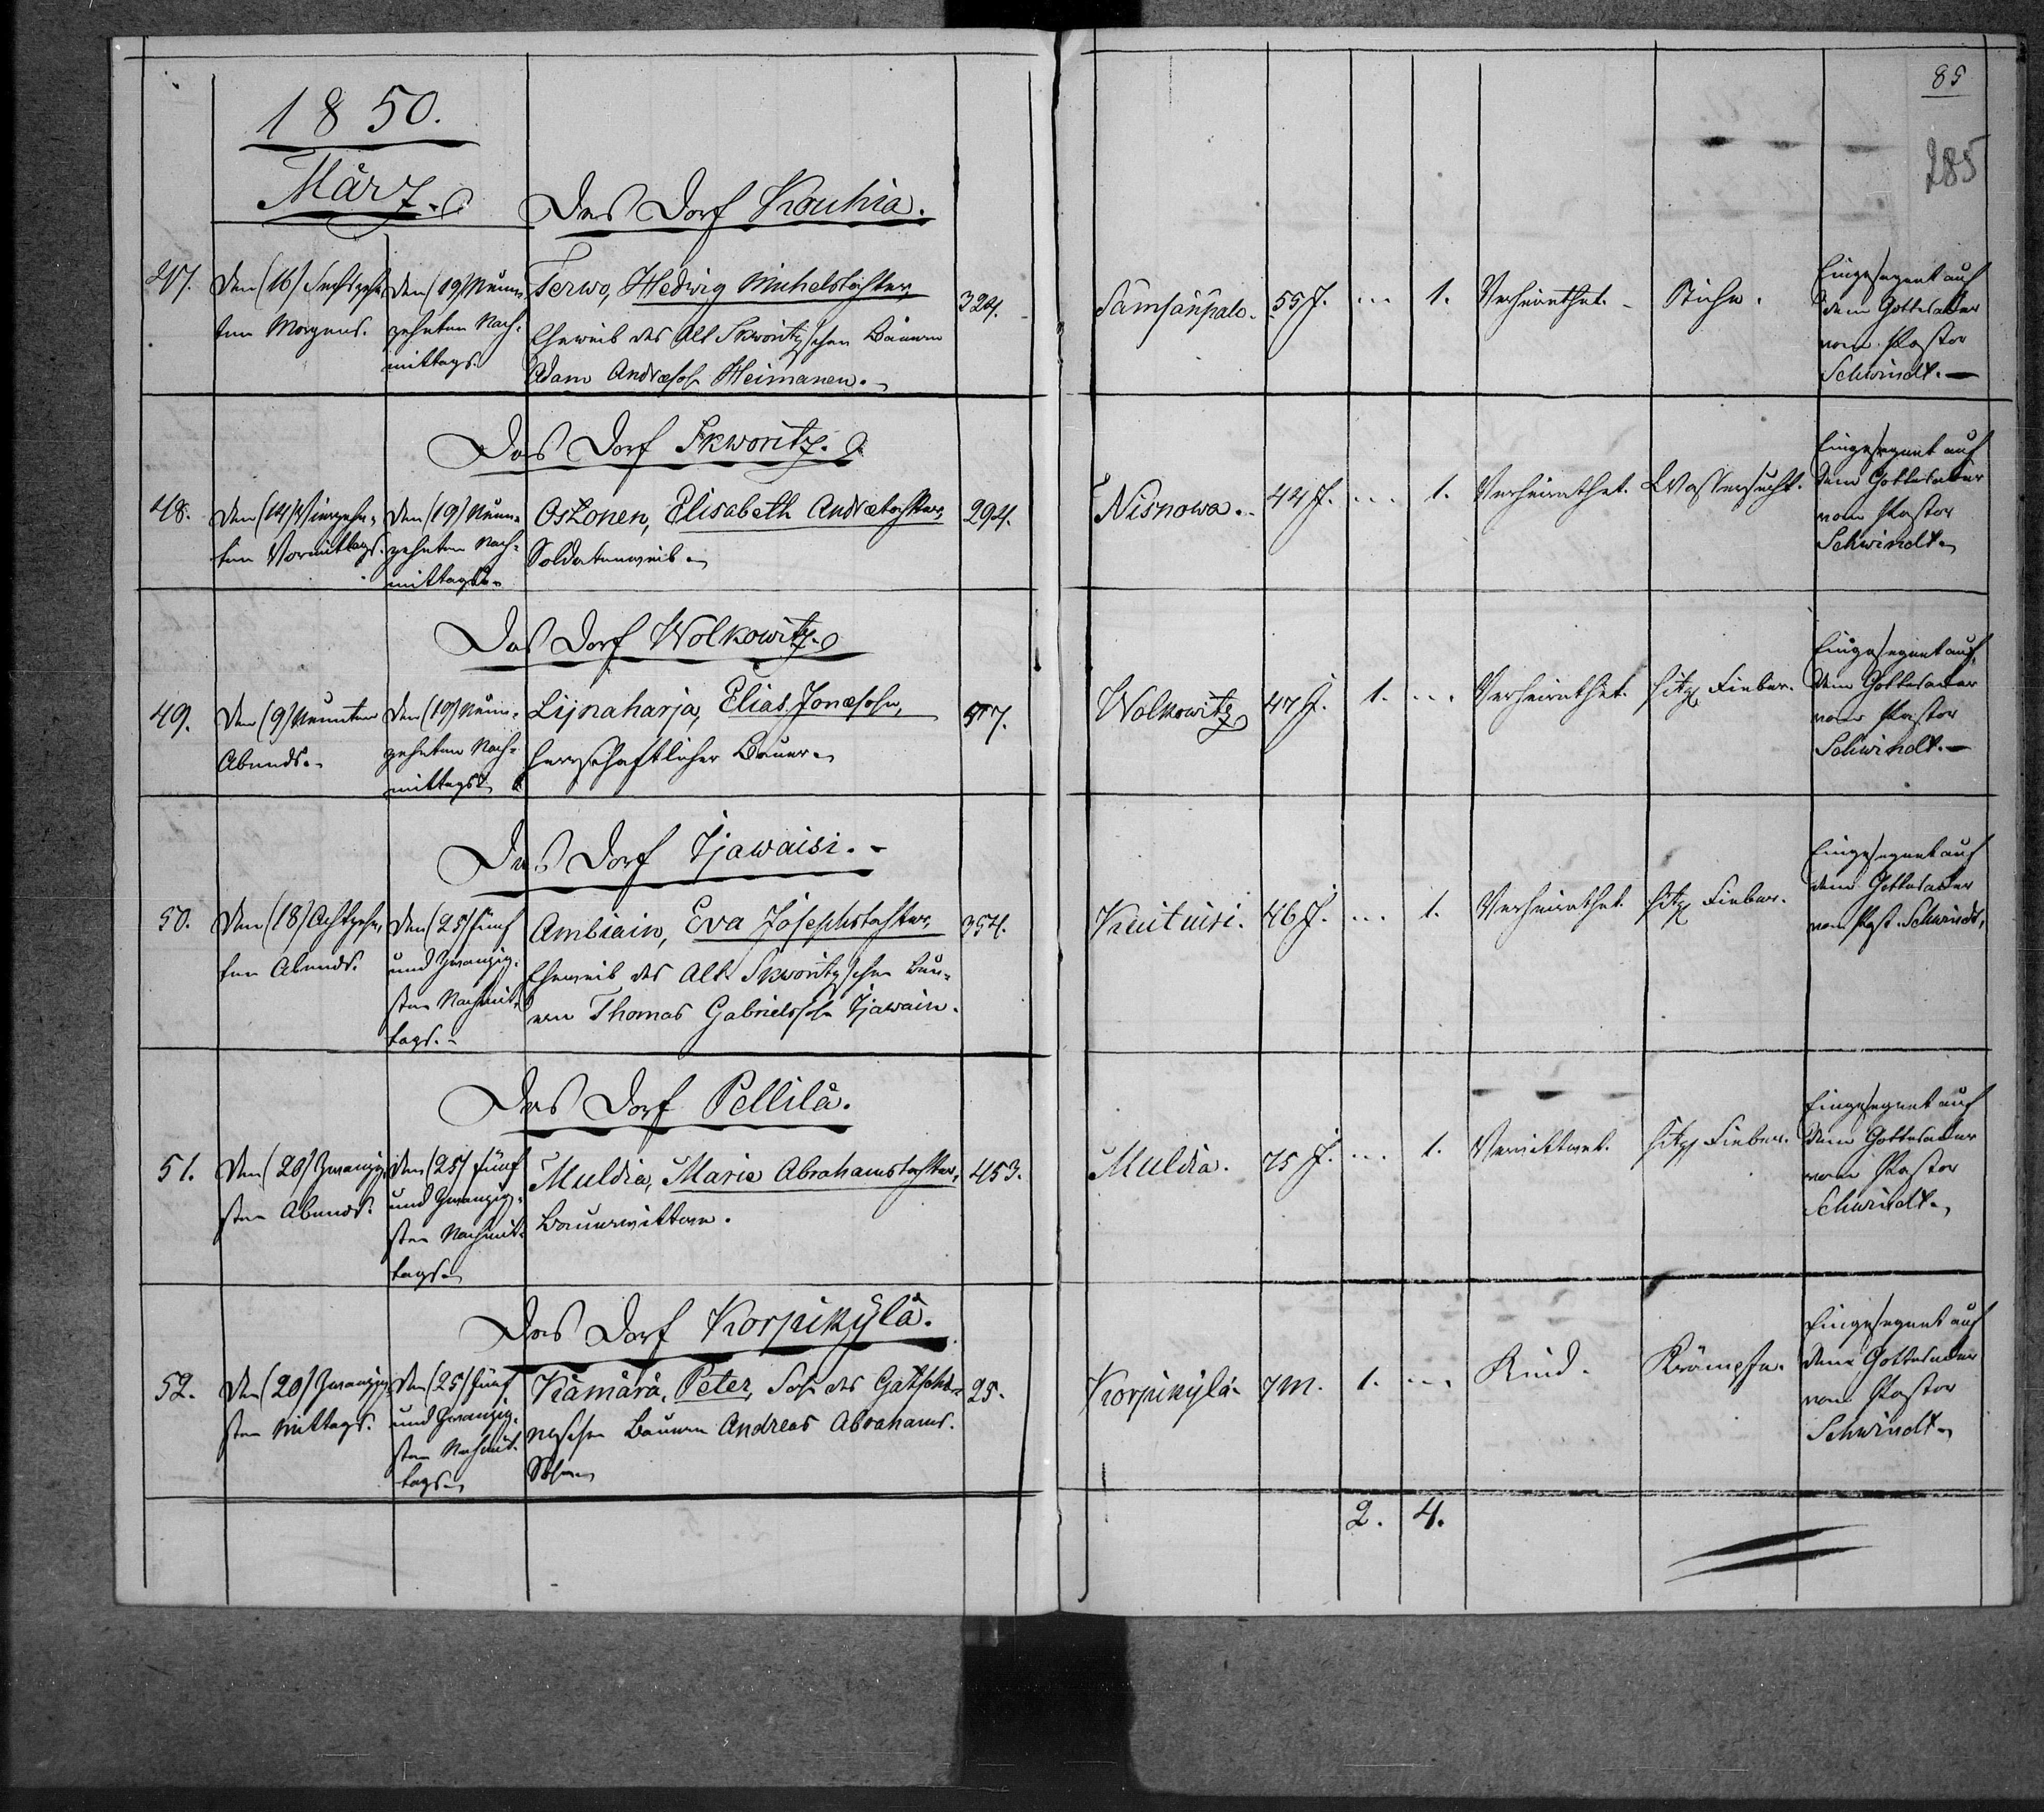 85
285
1850.
März.
Das Dorf Kouhia.
47.
Den (16) Sechszehn-
ten Morgens.
Den (19) Neun-
zehnten Nach-
mittags.
Terwo, Hedwig Michelstochter,
Eheweib des Alt Skworitzschen Bauern
Adam Andræsohn Heimanen.
324.
Sämsänpalo.
55 J.
...
1.
Verheirathet.
Stiche.
Eingesegnet auf
dem Gottesacker
vom Pastor
Schwindt.
Das Dorf Skworitz.
48.
Den (14) Vierzehn-
ten Vormittags.
Den (19) Neun-
zehnten Nach-
mittags.
Oskonen, Elisabeth Andrætochter,
Soldatenweib.
294.
Nisnowa.
44 J.
...
1.
Verheirathet.
Wassersucht.
Eingesegnet auf
dem Gottesacker
vom Pastor
Schwindt.
Das Dorf Wolkowitz.
49.
Den (9) Neunten
Abends.
Den (19) Neun-
zehnten Nach-
mittags.
Lijnaharja, Elias Jonæsohn,
herrschaftlicher Bauer.
Wolkowitz
47 J.
1.
...
Verheirathet.
hitz. Fieber.
Eingesegnet auf
dem Gottesacker
vom Pastor
Schwindt.
Das Dorf Tjawaisi.
50.
Den (18) Achtzehn-
ten Abends.
Den (25) Fünf
und Zwanzig-
sten Nachmit-
tags.
Ambiain, Eva Josephstochter,
Eheweib des Alt Skworitzschen Bau-
ern Thomas Gabrielssohn Tjawain.
354.
46 J.
...
1.
Verheirathet
hitz. Fieber.
Eingesegnet auf
dem Gottesacker
vom Past. Schwindt.
Das Dorf Pellilä.
51.
Den (20) Zwanzig-
sten Abends.
Den (25) Fünf
und Zwanzig-
sten Nachmit-
tags.
Muldia, Maria Abrahamstochter,
Bauerwittwe.
453.
Muldia.
75 J.
...
1.
Verwittwet.
hitz. Fieber.
Eingesegnet auf
dem Gottesacker
vom Pastor
Schwindt.
Das Dorf Korpikylä.
52.
Den (20) Zwanzig-
sten Mittags.
Den (25) Fünf
und Zwanzig-
sten Nachmit-
tags.
Kämärä, Peter, Sohn des Gatschi-
nschen Bauern Andreas Abrahams-
Sohn.
25.
Korpikylä.
7 M.
1.
...
Kind.
Krämpfe.
Eingesegnet auf
dem Gottesacker
vom Pastor
Schwindt.
2.
4.